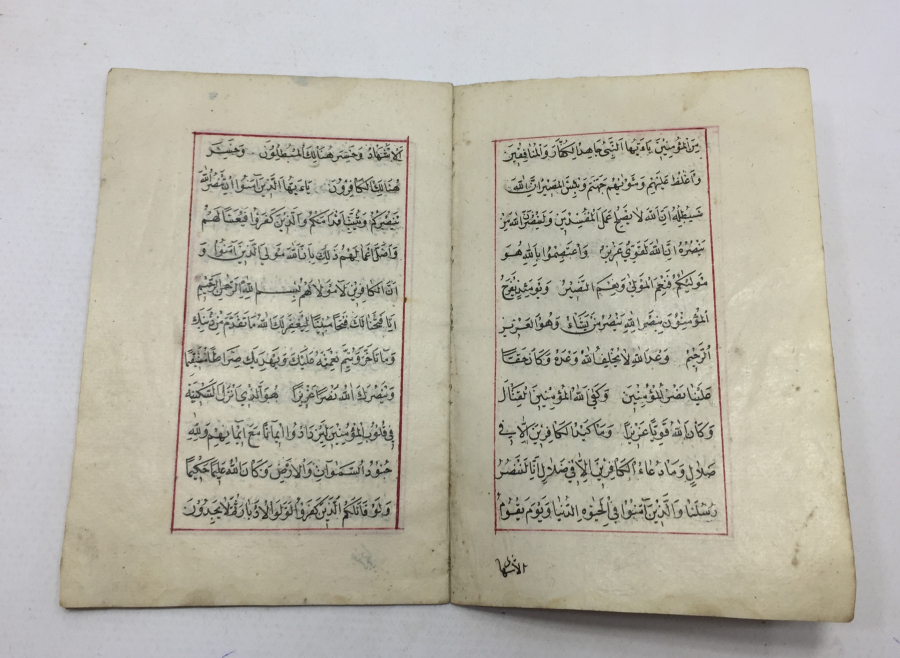 من المؤمنين ياءيها النبي جاهد الكفار والمنافقين
واغلظ عليهم ومئويهم جهنم وبئس المصير ان الله
سيبطله ان الله لا يصلح عمل المفسدين ولينصرن الله من
ينصره ان الله لقوي عزيز واعتصموا بالله هو
موليكم فنعم المولى ونعم النصير ويومئذ يفرح
المؤمنون بنصر الله ينصر من يشاء وهو العزيز
الرحيم وعد الله لا يخلف الله وعده وكان حقا
علينا نصر المؤمنين وكفى الله المؤمنين القتال
وكان الله قويا عزيزا وما كيد الكافرين الا في
ضلال وما دعاء الكافرين الا في ضلال انا لننصر
رسلنا والذين آمنوا في الحيوة الدنيا ويوم يقوم
الاشهاد
الاشهاد وخسر هنالك المبطلون وخسر
هنالك الكافرون ياءيها الذين آمنوا ان تنصروا الله
ينصركم ويثبت اقدامكم والذين كفروا فتعسا لهم
واضل اعمالهم ذلك بان الله مولى الذين آمنوا و
ان الكافرين لا مولى لهم بسم الله الرحمن الرحيم
انا فتحنا لك فتحا مبينا ليغفر لك الله ما تقدم من ذنبك
وما تأخر ويتم نعمته عليك ويهديك صراطا مستقيما
وينصرك الله نصرا عزيزا هو الذي انزل السكينة
في قلوب المؤمنين ليزدادوا ايمانا مع ايمانهم ولله
جنود السموات والارض وكان الله عليما حكيما
ولو قاتلكم الذين كفروا لولوا الادبار ثم لا يجدون